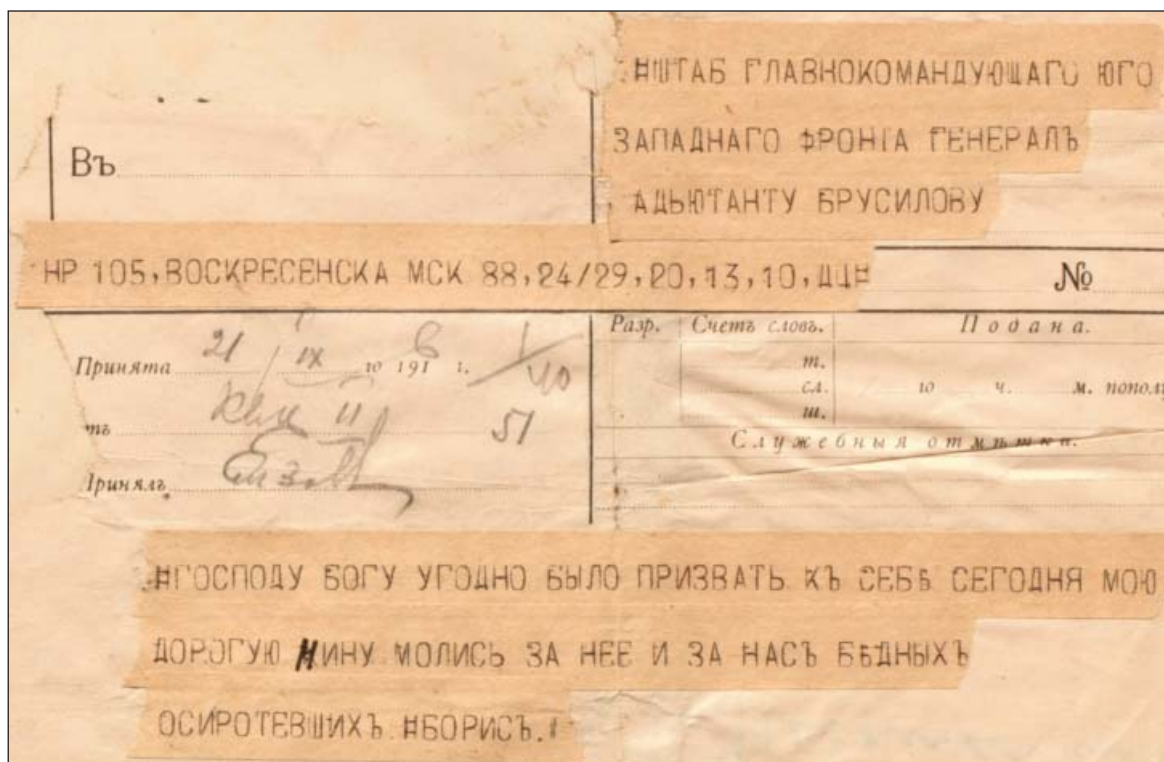 ШТАБ ГЛАВНОКОМАНДУЮЩАГО ЮГО
ЗАПАДНАГО ФРОНТА ГЕНЕРАЛЪ
АДЬЮТАНТУ БРУСИЛОВУ
Въ
НР 105,ВОСКРЕСЕНСКА МСК 88,24/29,20,13,10,
№
Принята 21 IX го 1916 г. 1/40
Разр. Счетъ словъ. Подана.
т.
сл. го ч. м. пополу
ш.
тъ 51
Служебныя отмѣтки.
Принялъ
ГОСПОДУ БОГУ УГОДНО БЫЛО ПРИЗВАТЬ КЪ СЕБѢ СЕГОДНЯ МОЮ
ДОРОГУЮ НИНУ МОЛИСЬ ЗА НЕЕ И ЗА НАСЪ БѢДНЫХЪ
ОСИРОТЕВШИХЪ БОРИСЪ.